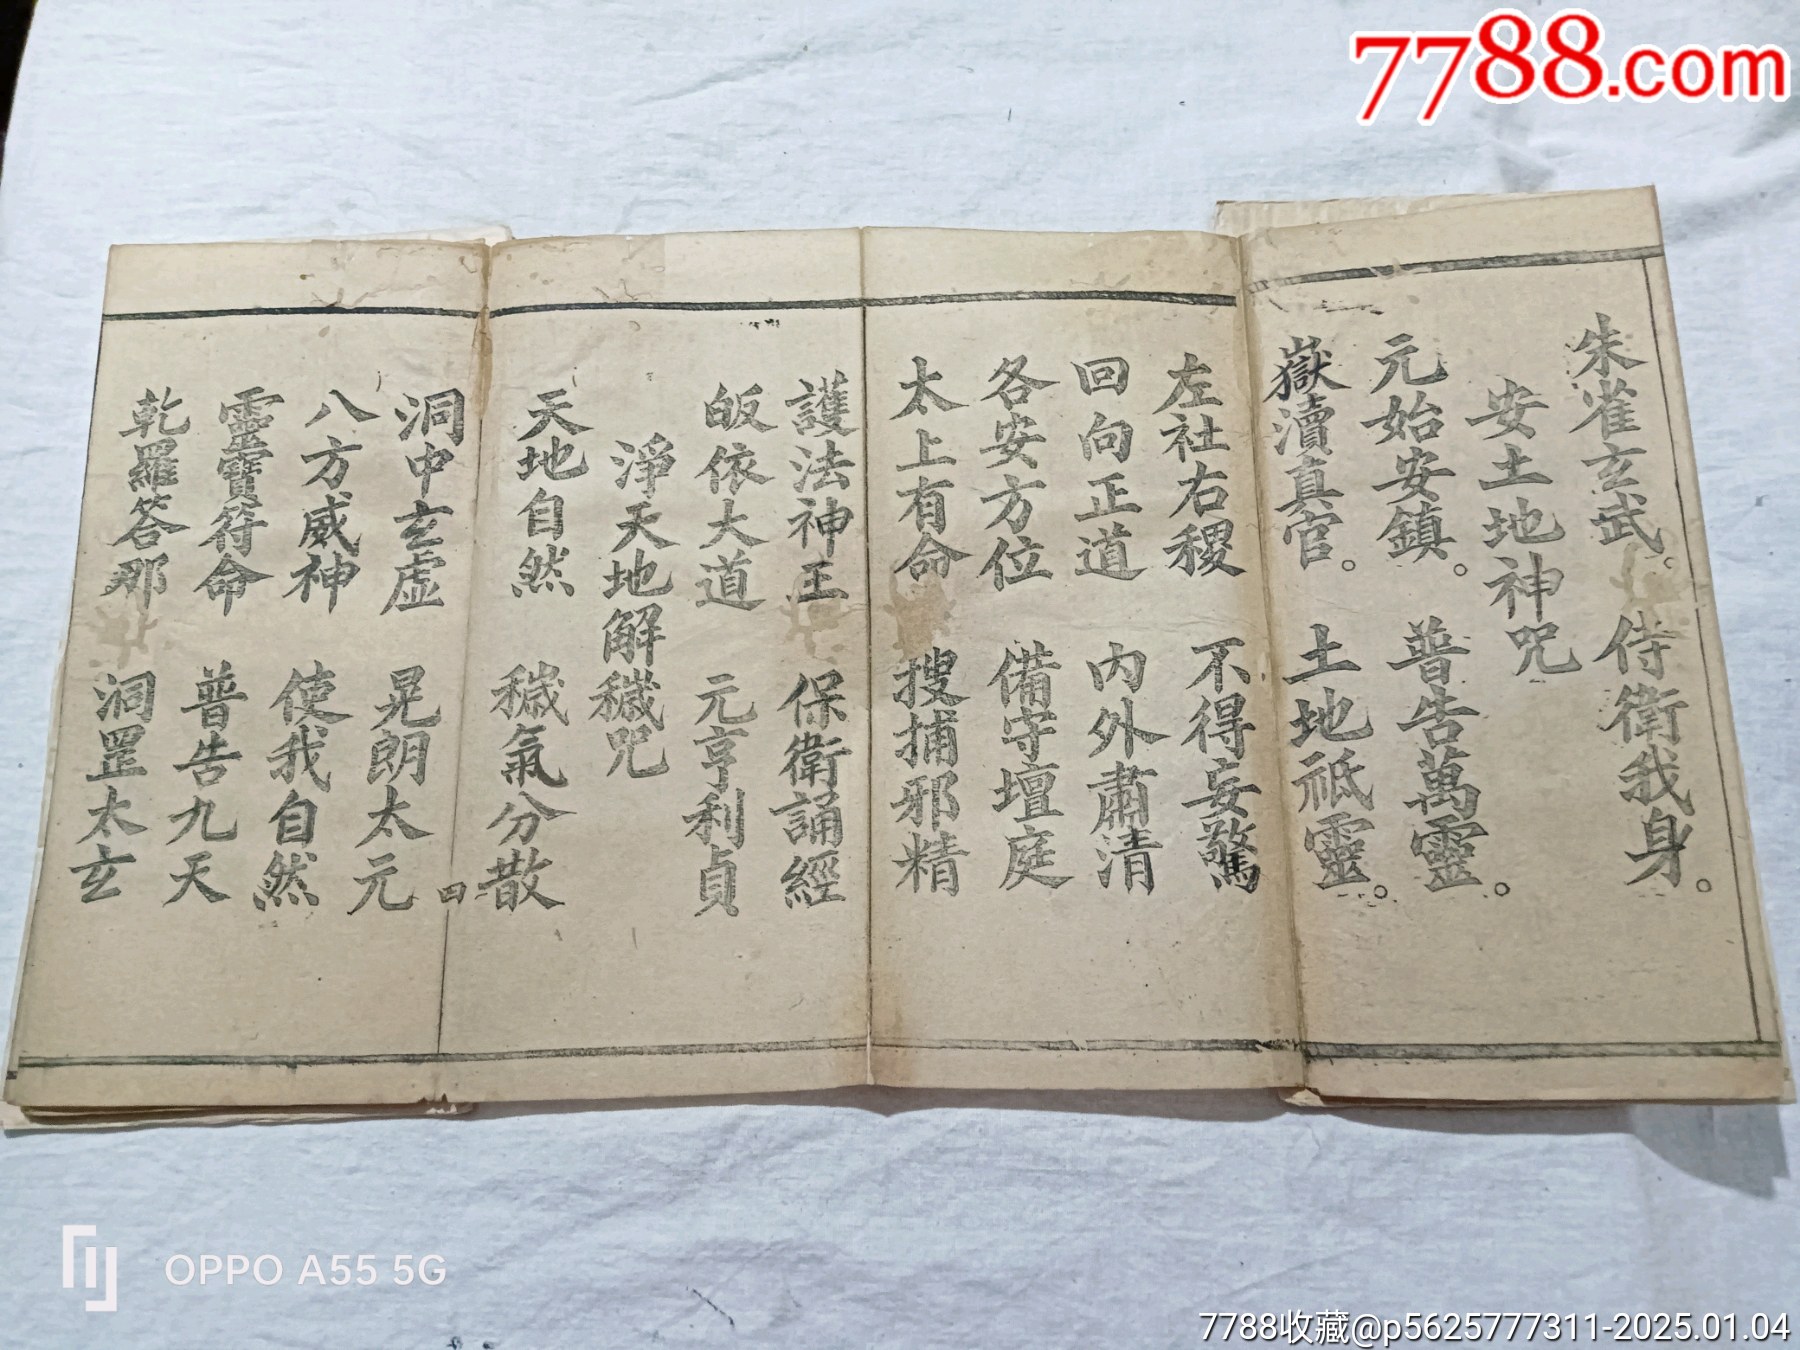 7788.com
朱雀玄武。侍衛我身。
安土地神咒
元始安鎮。普告萬靈。
嶽瀆真官。土地祇靈。
左社右稷 不得妄驚
回向正道 內外肅清
各安方位 備守壇庭
太上有命 搜捕邪精
護法神王 保衛誦經
皈依大道 元亨利貞
淨天地解穢咒
天地自然 穢氣分散
洞中玄虛 晃朗太元
八方威神 使我自然
靈寶符命 普告九天
乾羅答那 洞罡太玄
OPPO A55 5G
7788收藏@p5625777311-2025.01.04